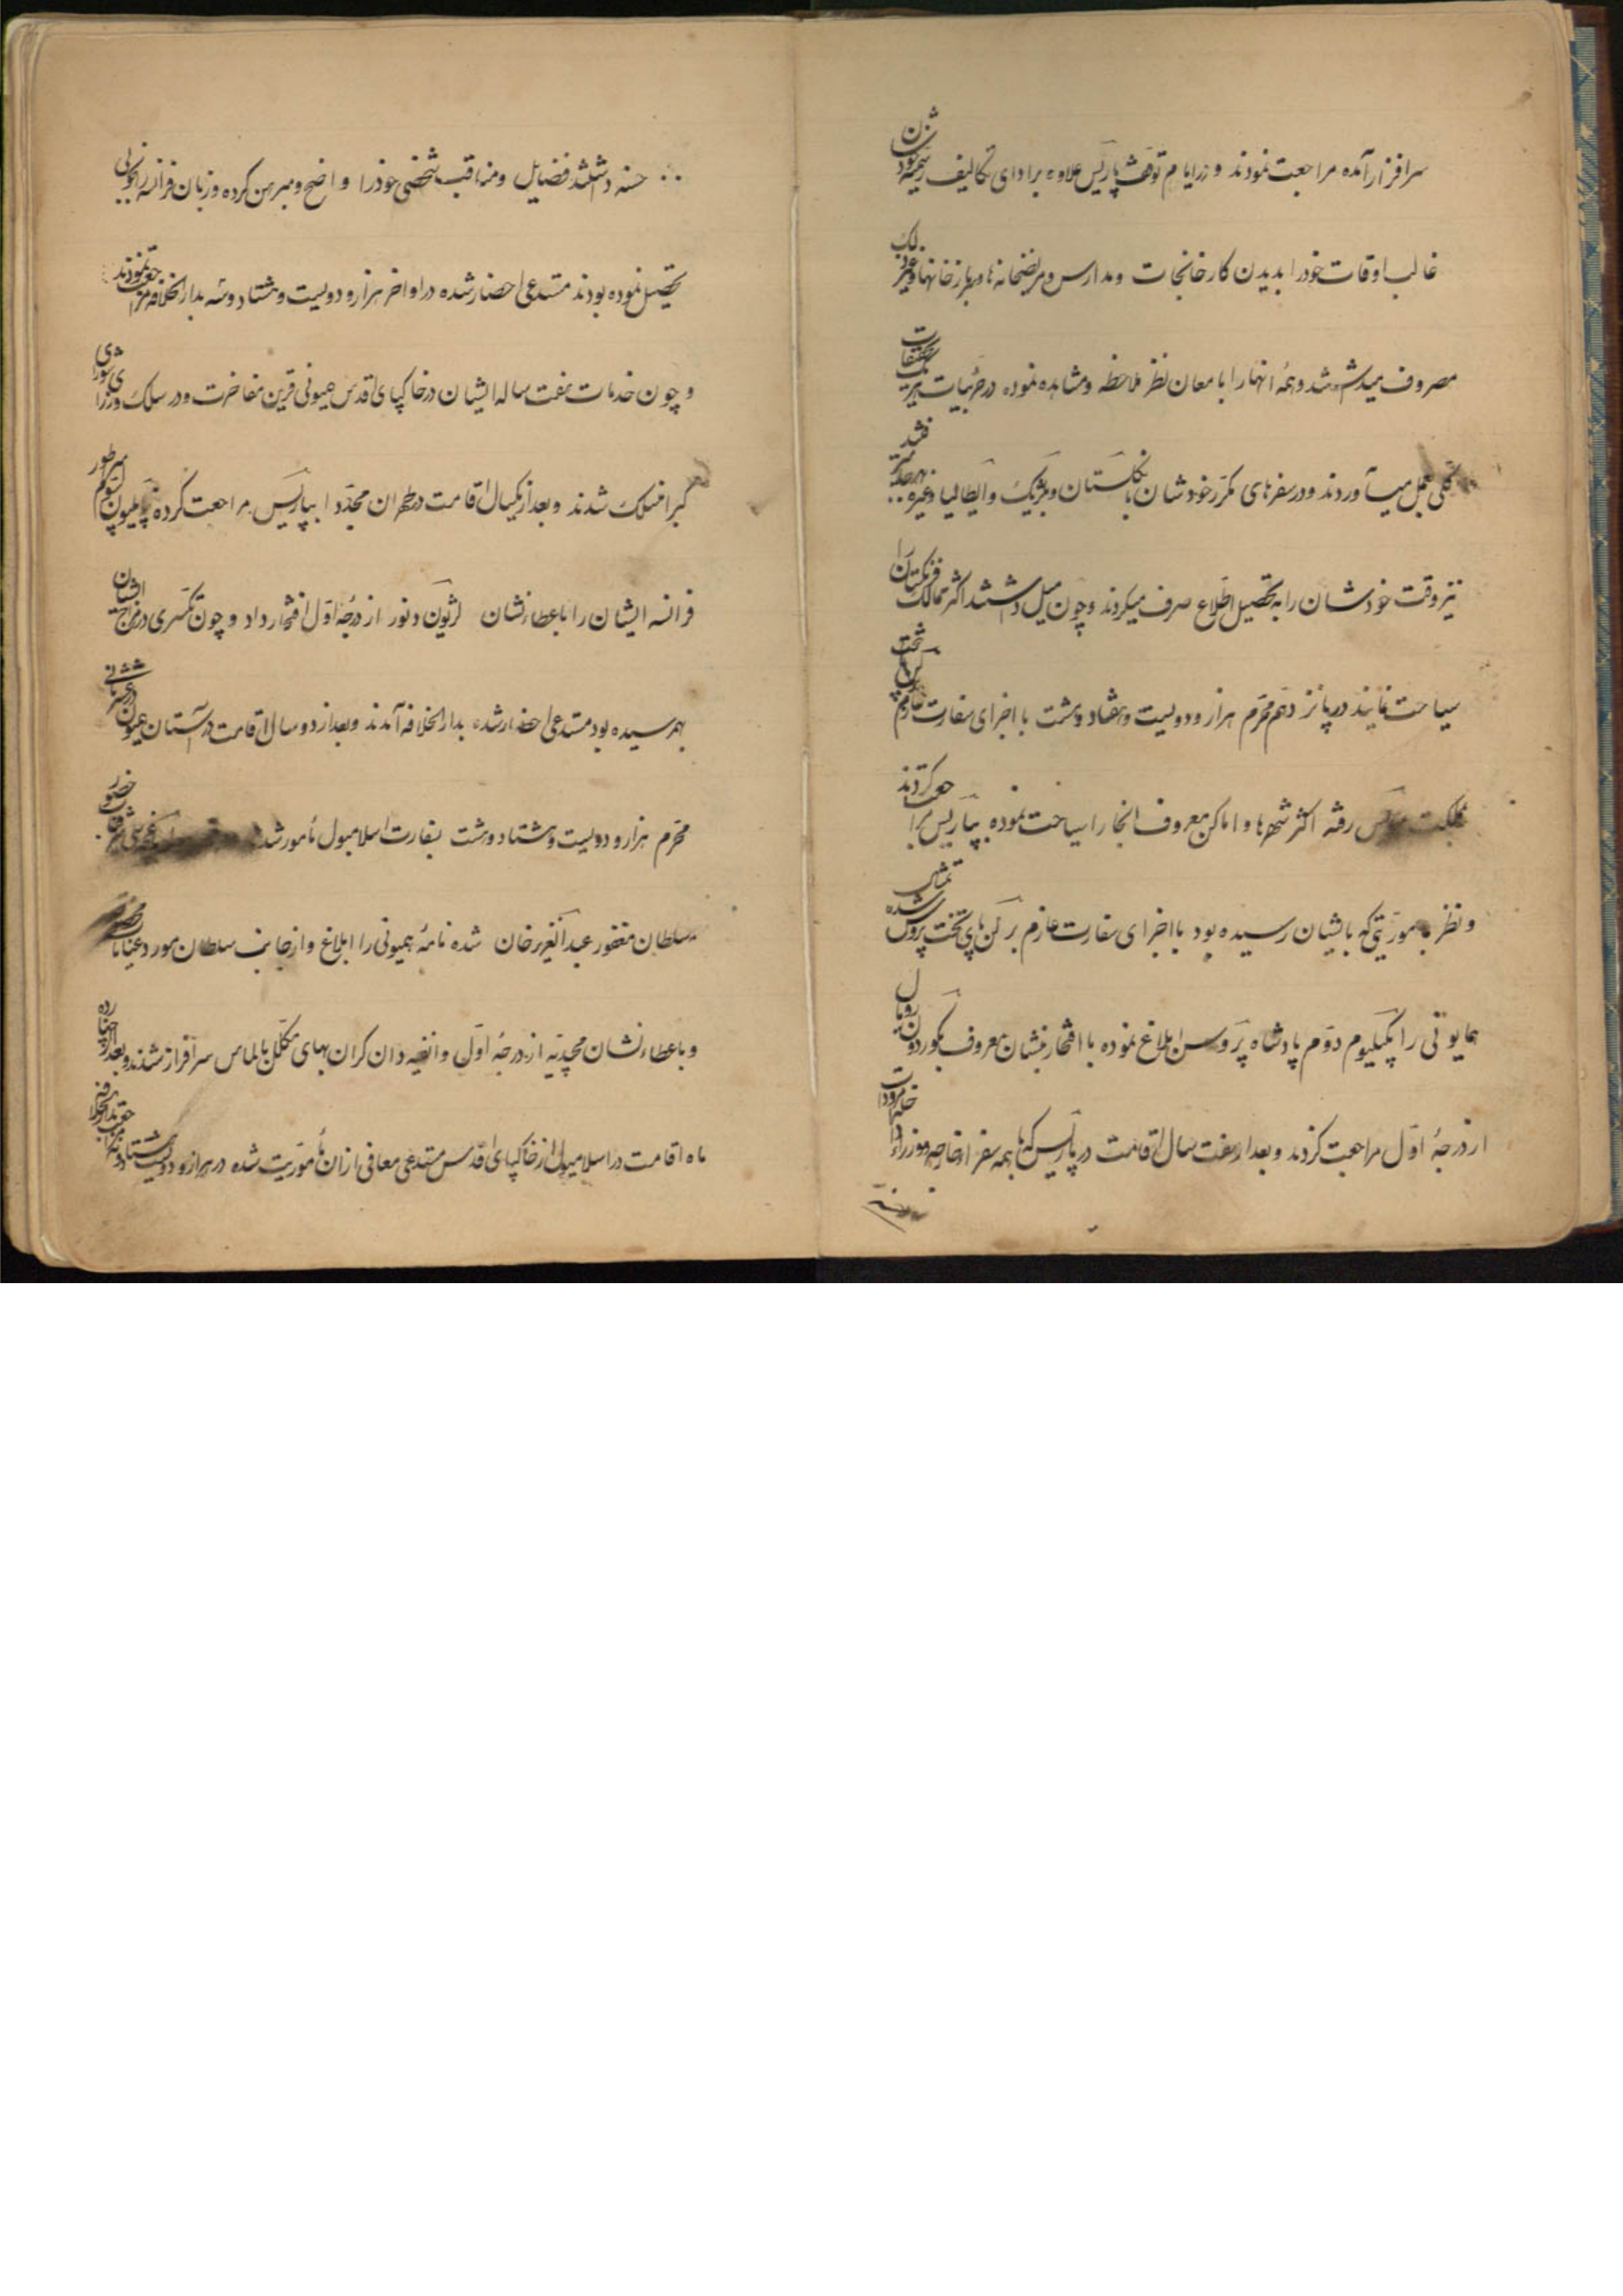 سرافراز آمده مراجعت نمودند و در ایام توقف پاریس علاوه بر ادای تکالیف رسمیه خودشان
غالب اوقات خود را بدیدن کارخانجات و مدارس و مریضخانه‌ها و سربازخانها و غیر ذلک
مصروف میداشتند و همه آنها را با معان نظر ملاحظه و مشاهده نموده در جزئیات هر یک تحقیقات
کلی بعمل میآوردند و در سفرهای مکرر خودشان بانگلستان و بلژیک و ایطالیا و غیره
نیز وقت خودشان را به تحصیل اطلاع صرف میکردند و چون میل داشتند اکثر ممالک فرنگستان را
سیاحت نمایند در پانزدهم محرم هزار و دویست و هفتاد و هشت با اجزای سفارت عازم پای تخت
مملکت رفته اکثر شهرها و اماکن معروف آنجا را سیاحت نموده بپاریس مراجعت کردند
و نظر بمأموریتی که بایشان رسیده بود با اجزای سفارت عازم برلن پای تخت پروس شده
همایونی را بگیلیوم دوم پادشاه پروس ابلاغ نموده با افتخار نشان معروف بکوردون رویال
از درجهٔ اول مراجعت کردند و بعد از هفت سال اقامت در پاریس که با همه سفرا و وزراء
حسنه داشتند فضایل و مناقب شخصی خود را واضح و مبرهن کرده و زبان فرانسه را بخوبی
تحصیل نموده بودند مستدعی احضار شده در اواخر هزار و دویست و هشتاد و سه بدارالخلافه مراجعت نمودند
و چون خدمات هفت ساله ایشان در خاکپای اقدس همیونی قرین مفاخرت و در سلک وزرای شورای
کبرا منسلک شدند و بعد از یکسال اقامت در طهران مجددا بپاریس مراجعت کرده ناپلیون سیوم امپرطور
فرانسه ایشان را با عطاء نشان لژیون دنور از درجهٔ اول افتخار داد و چون تکسری در مزاج ایشان
بهمرسیده بود مستدعی احضار شده بدارالخلافه آمدند و بعد از دو سال اقامت در آستان همیون
محرم هزار و دویست و هشتاد و هشت بسفارت اسلامبول مأمور شد
سلطان مغفور عبدالعزیز خان شده نامهٔ همیونی را ابلاغ و از جانب سلطان مورد عنایات
و با عطاء نشان مجیدیه از درجهٔ اول و انفیه‌دان گران بهای مکلل بالماس سرافراز شدند و بعد از چهارده
ماه اقامت در اسلامبول از خاکپای اقدس مستدعی معافی از آن مأموریت شده در هزار و دویست و هشتاد و نه